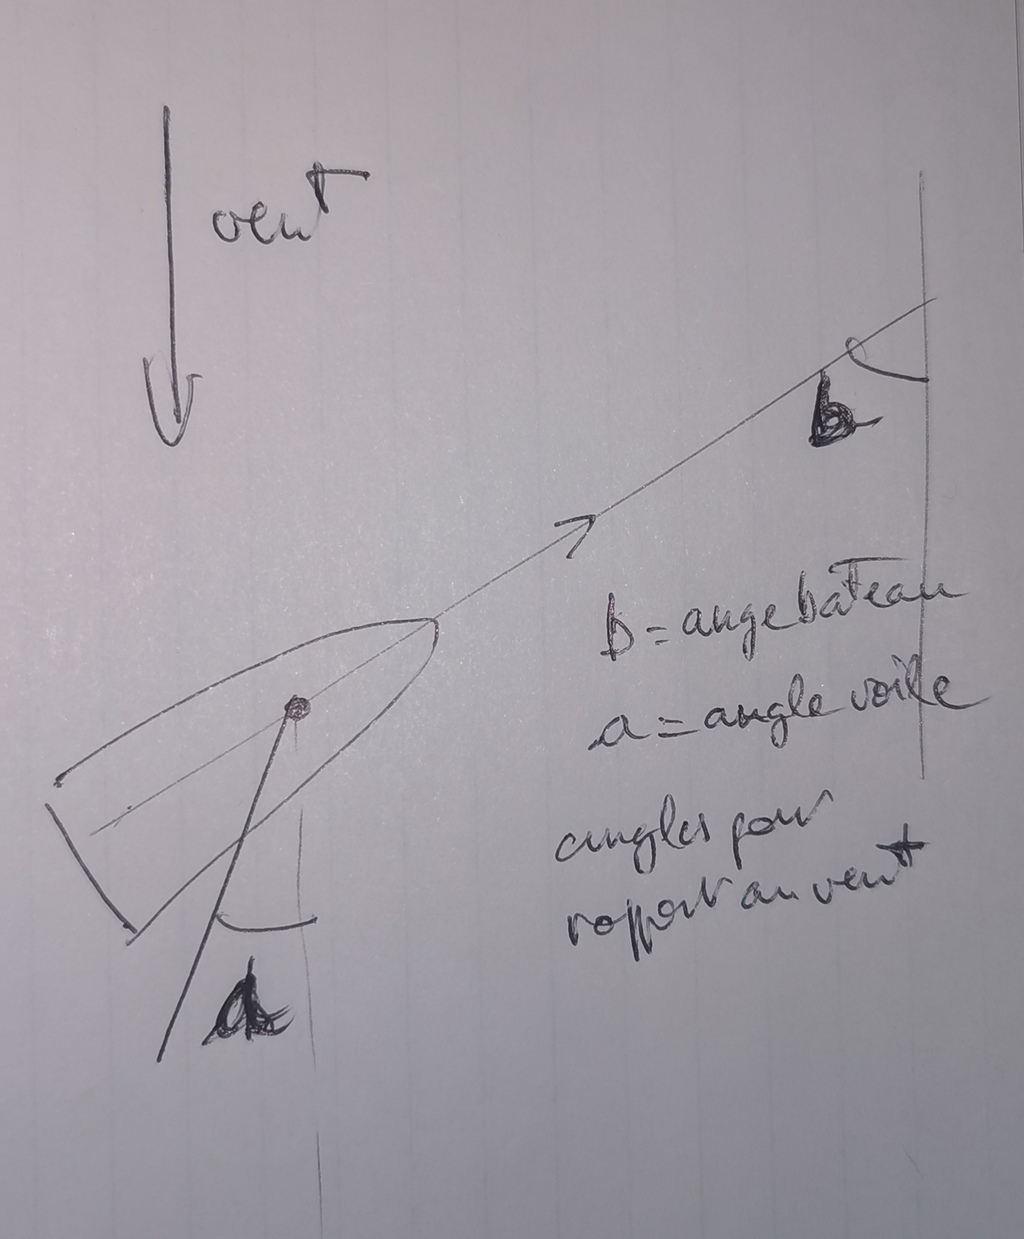 vent
b
b = ange bateau
a = angle voile
angles pour
rapport au vent
a